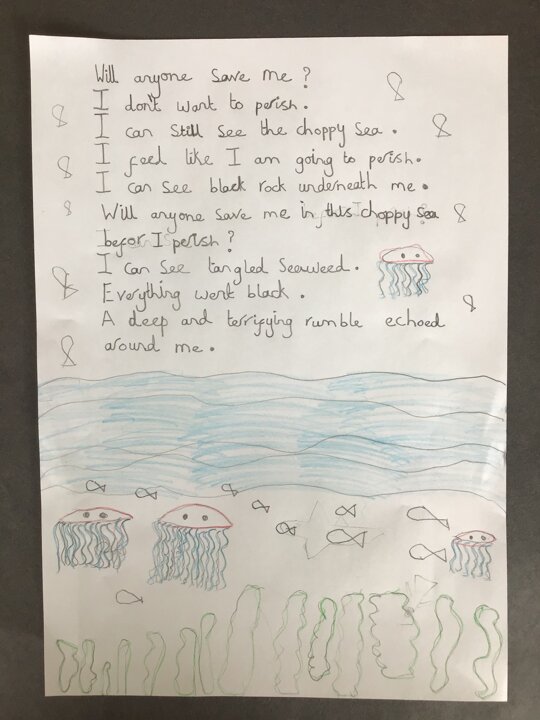 Will anyone save me?
I don't want to perish.
I can still see the choppy sea.
I feel like I am going to perish.
I can see black rock underneath me.
Will anyone save me in this choppy sea
befor I perish?
I can see tangled seaweed.
Everything went black.
A deep and terrifying rumble echoed
around me.